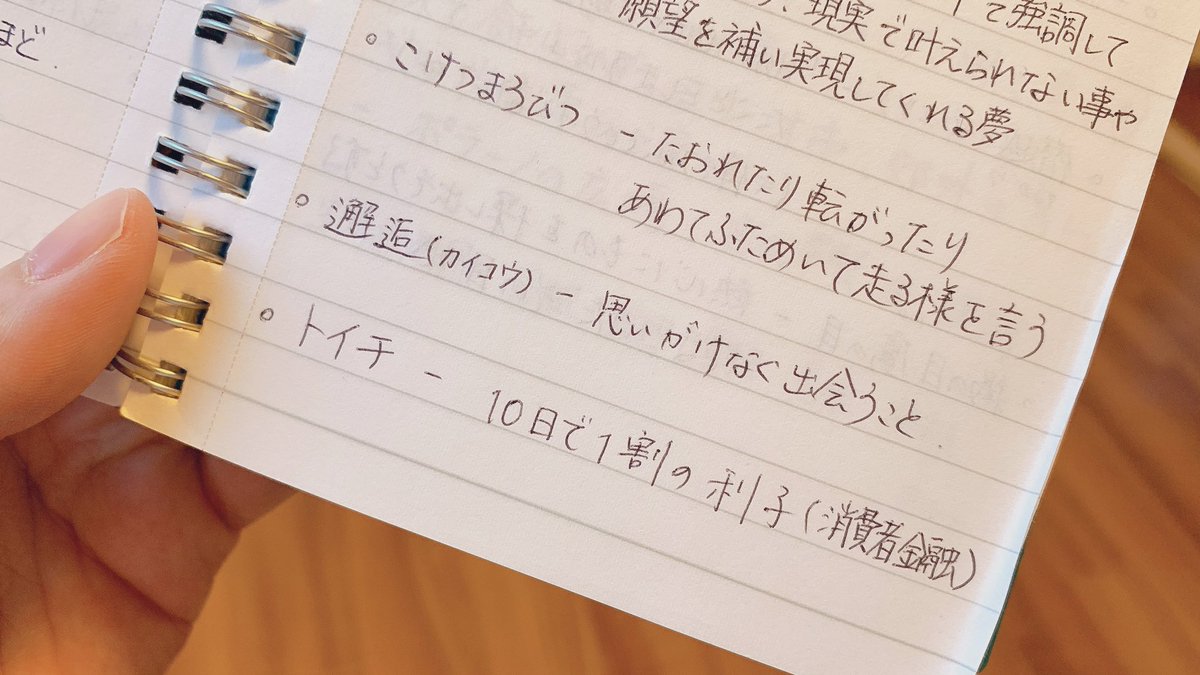 ほど.
て強調して
、現実で叶えられない事や
願望を補い実現してくれる夢
。こけつまろびつ - たおれたり転がったり
あわてふためいて走る様を言う
。邂逅(カイコウ) - 思いがけなく出会うこと.
。トイチ - 10日で1割の利子(消費者金融)